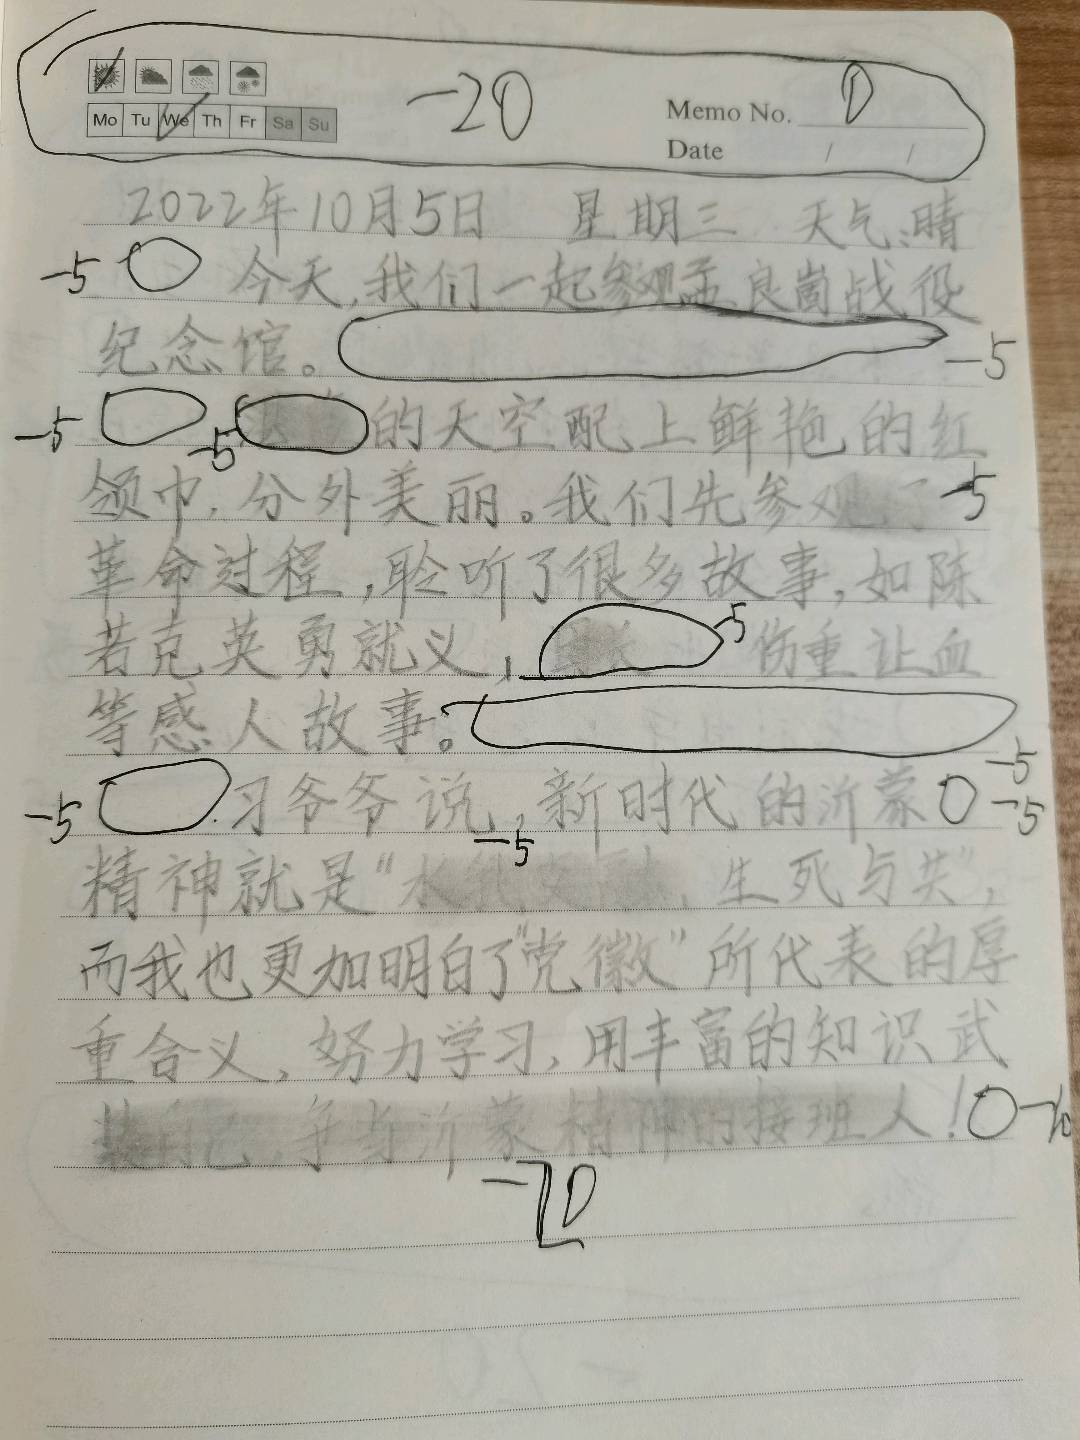 Mo Tu We Th Fr Sa Su
-20
Memo No. 0
Date / /
2022年10月5日 星期三 天气:晴
-5 今天,我们一起参观孟良崮战役
纪念馆。 -5
-5 -5 的天空配上鲜艳的红
领巾,分外美丽。我们先参观了 -5
革命过程,聆听了很多故事,如陈
若克英勇就义, -5 伤重让血
等感人故事。 -5
-5 习爷爷说,新时代的沂蒙 -5
-5
精神就是“水乳交融,生死与共”,
而我也更加明白了“党徽”所代表的厚
重含义,努力学习,用丰富的知识武
装自己,争当沂蒙精神的接班人! -10